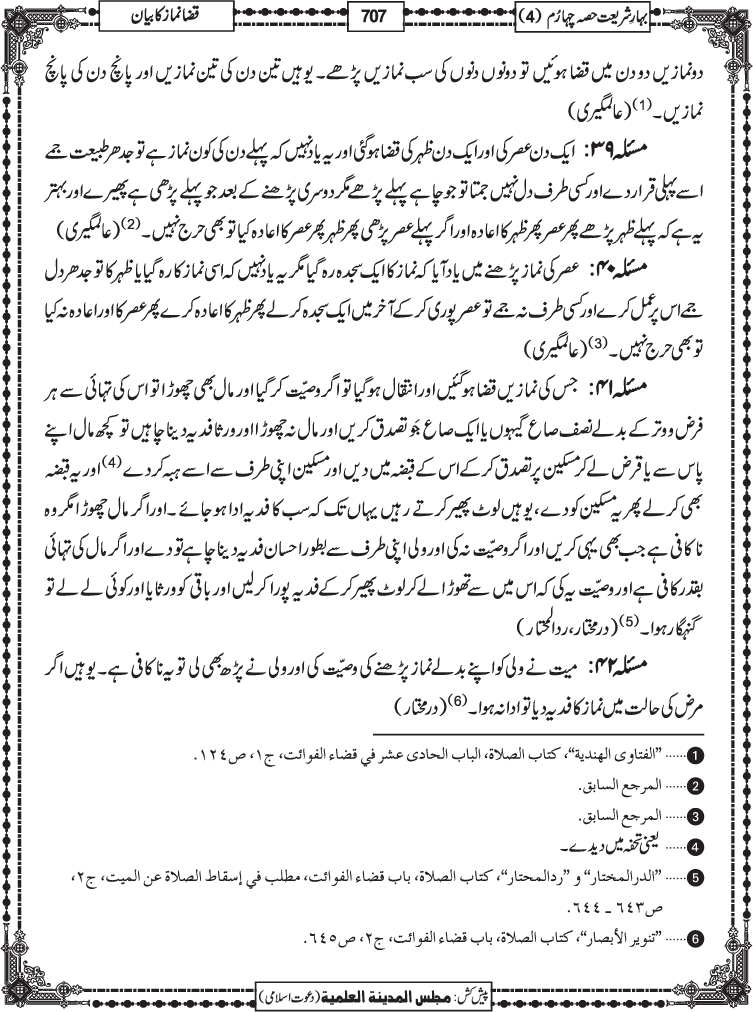 بہارِ شریعت حصہ چہارم (4)
707
قضا نماز کا بیان
دو نمازیں دو دن میں قضا ہوئیں تو دونوں دنوں کی سب نمازیں پڑھے۔ یوہیں تین دن کی تین نمازیں اور پانچ دن کی پانچ
نمازیں۔(1) (عالمگیری)
مسئلہ ۳۹: ایک دن عصر کی اور ایک دن ظہر کی قضا ہوگئی اور یہ یاد نہیں کہ پہلے دن کی کون نماز ہے تو جدھر طبیعت جمے
اسے پہلی قرار دے اور کسی طرف دل نہیں جمتا تو جو چاہے پہلے پڑھے مگر دوسری پڑھنے کے بعد جو پہلے پڑھی ہے پھیرے اور بہتر
یہ ہے کہ پہلے ظہر پڑھے پھر عصر پھر ظہر کا اعادہ اور اگر پہلے عصر پڑھی پھر ظہر پھر عصر کا اعادہ کیا تو بھی حرج نہیں۔(2) (عالمگیری)
مسئلہ ۴۰: عصر کی نماز پڑھنے میں یاد آیا کہ نماز کا ایک سجدہ رہ گیا مگر یہ یاد نہیں کہ اسی نماز کا رہ گیا یا ظہر کا تو جدھر دل
جمے اس پر عمل کرے اور کسی طرف نہ جمے تو عصر پوری کرکے آخر میں ایک سجدہ کرلے پھر ظہر کا اعادہ کرے پھر عصر کا اور اعادہ نہ کیا
تو بھی حرج نہیں۔(3) (عالمگیری)
مسئلہ ۴۱: جس کی نمازیں قضا ہوگئیں اور انتقال ہوگیا تو اگر وصیّت کرگیا اور مال بھی چھوڑا تو اس کی تہائی سے ہر
فرض و وتر کے بدلے نصف صاع گیہوں یا ایک صاع جَو تصدق کریں اور مال نہ چھوڑا اور ورثا فدیہ دینا چاہیں تو کچھ مال اپنے
پاس سے یا قرض لے کر مسکین پر تصدق کرکے اس کے قبضہ میں دیں اور مسکین اپنی طرف سے اسے ہبہ کردے (4) اور یہ قبضہ
بھی کرلے پھر یہ مسکین کو دے، یوہیں لوٹ پھیر کرتے رہیں یہاں تک کہ سب کا فدیہ ادا ہو جائے۔ اور اگر مال چھوڑا مگر وہ
ناکافی ہے جب بھی یہی کریں اور اگر وصیّت نہ کی اور ولی اپنی طرف سے بطورِ احسان فدیہ دینا چاہے تو دے اور اگر مال کی تہائی
بقدر کافی ہے اور وصیّت یہ کی کہ اس میں سے تھوڑا لے کر لوٹ پھیر کرکے فدیہ پورا کرلیں اور باقی کو ورثا یا اور کوئی لے لے تو
گنہگار ہوا۔(5) (درمختار، ردالمحتار)
مسئلہ ۴۲: میت نے ولی کو اپنے بدلے نماز پڑھنے کی وصیّت کی اور ولی نے پڑھ بھی لی تو یہ ناکافی ہے۔ یوہیں اگر
مرض کی حالت میں نماز کا فدیہ دیا تو ادا نہ ہوا۔(6) (درمختار)
1 ...... ”الفتاوی الھندیة“، کتاب الصلاة، الباب الحادی عشر في قضاء الفوائت، ج۱، ص۱۲٤.
2 ...... المرجع السابق.
3 ...... المرجع السابق.
4 ...... یعنی تحفہ میں دیدے۔
5 ...... ”الدرالمختار“ و ”ردالمحتار“، کتاب الصلاة، باب قضاء الفوائت، مطلب في إسقاط الصلاة عن المیت، ج۲،
ص٦٤٣ ـ ٦٤٤.
6 ...... ”تنویر الأبصار“، کتاب الصلاة، باب قضاء الفوائت، ج۲، ص٦٤٥.
پیش کش: مجلس المدینة العلمیة (دعوت اسلامی)